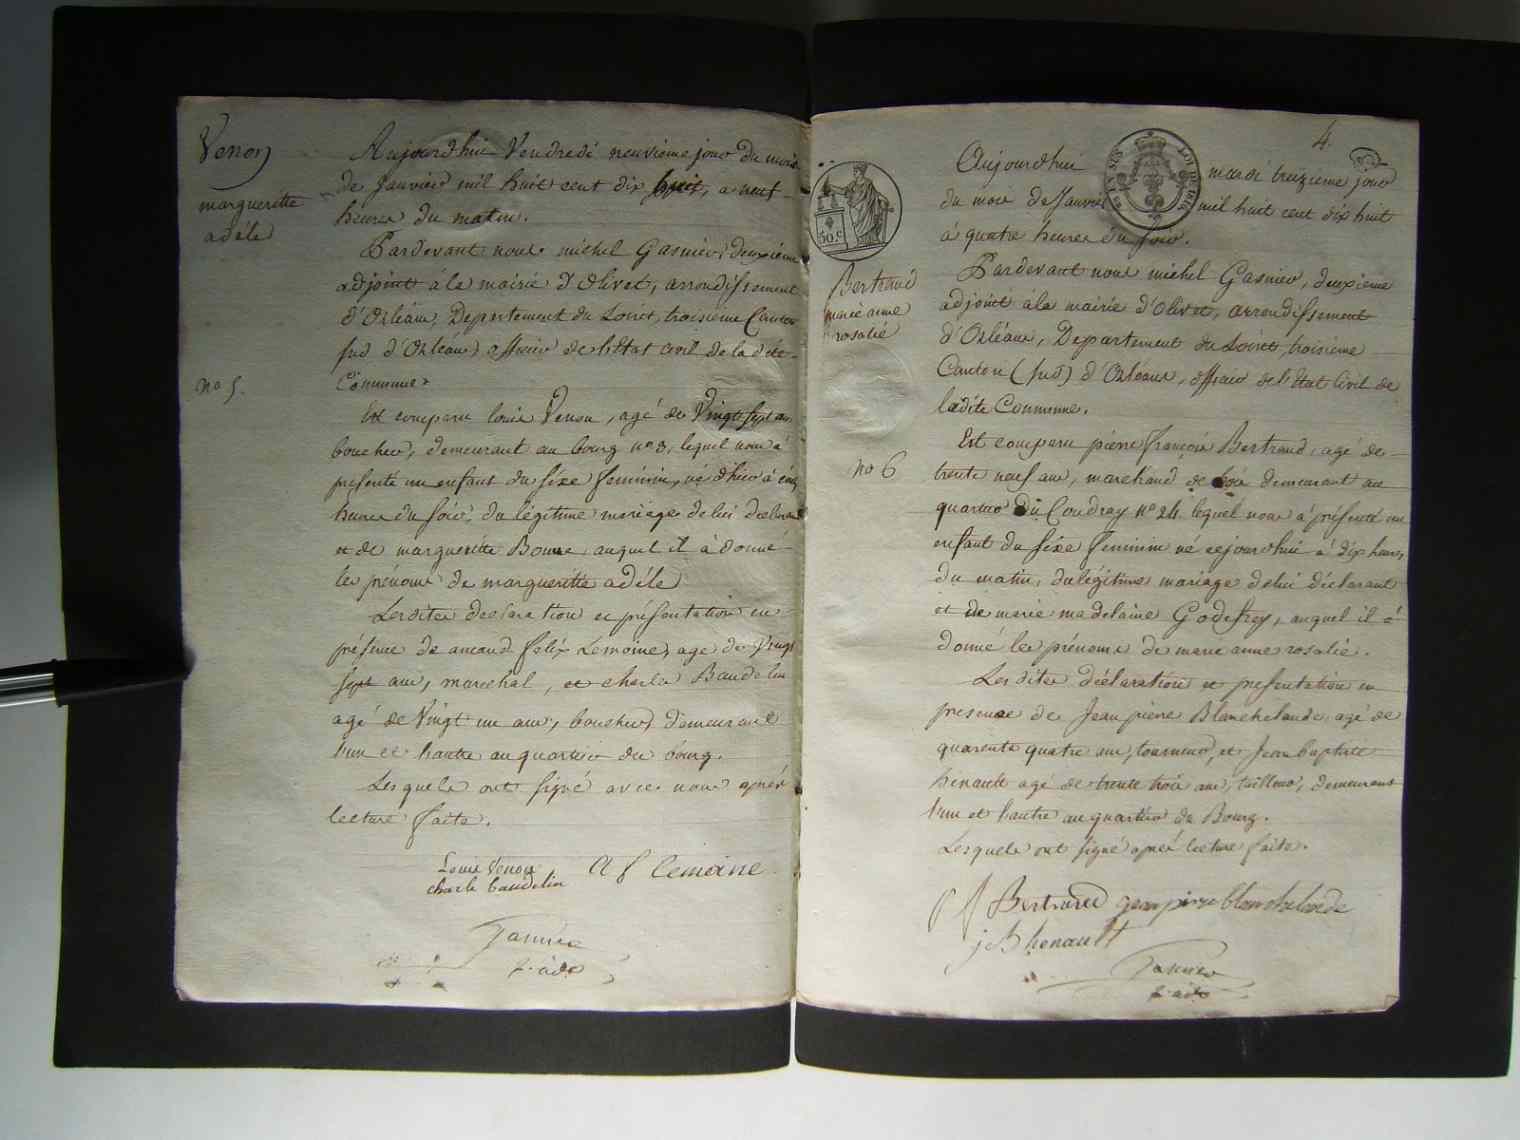 Venon
margueritte
adéle
no 5.
Aujourdhui Vendredi neuvieme jour du mois
de Janvier mil huit cent dix huit, a neuf
heures du matin.
Pardevant nous michel Gasnier, deuxieme
adjoint à la mairie d'Olivet, arrondissement
d'Orléans, Departement du Loiret, troisieme Canton
sud d'Orléans, officier de l'état civil de la dite
Commune.
Est comparu louis Venon, agé de Vingt sept ans
boucher, demeurant au bourg no 8, lequel nous à
presenté un enfant du sexe feminin, né d'hier à cinq
heures du soir, du légitime mariage de lui declarant
et de margueritte Bonne auquel il à donné
les prénoms de margueritte adéle
Lesdites declaration et présentation en
présence de amand felix Lemoine, age de Vingt
sept ans, marechal, et charles Baudelin
agé de Vingt un ans, boucher, demeurant
l'un et l'autre au quartier du bourg.
Lesquels ont signé avec nous après
lecture faite.
Louis Venon
A f lemoine
charle baudelin
Gasnier
2. adj
4.
EN SUS
LOI DE 1816
50 c
Bertrand
marie anne
rosalie
no 6
Aujourdhui mardi treizieme jour
du mois de Janvier mil huit cent dix huit
à quatre heures du soir.
Pardevant nous michel Gasnier, deuxieme
adjoint à la mairie d'Olivet, arrondissement
d'Orléans, Departement du Loiret, troisieme
Canton (sud) d'Orléans, officier de l'Etat Civil de
ladite Commune.
Est comparu pierre françois Bertrand, agé de
trente neuf ans, marchand de bois demeurant au
quartier du Coudray No 24. lequel nous à présenté un
enfant du sexe feminin né cejourdhui à dix heures
du matin, du légitime mariage de lui déclarant
et de marie madelaine Godefrey, auquel il à
donné les prénoms de marie anne rosalie.
Lesdites déclaration et presentation en
presence de Jean pierre Blanchelande, agé de
quarente quatre ans, tourneur, et Jean baptiste
henault agé de trente trois ans, tailleur, demeurant
l'un et l'autre au quartier du Bourg.
Lesquels ont signé après lecture faite.
p f Bertrand jean pierre blanchelande
j B henault
Gasnier
2. adj